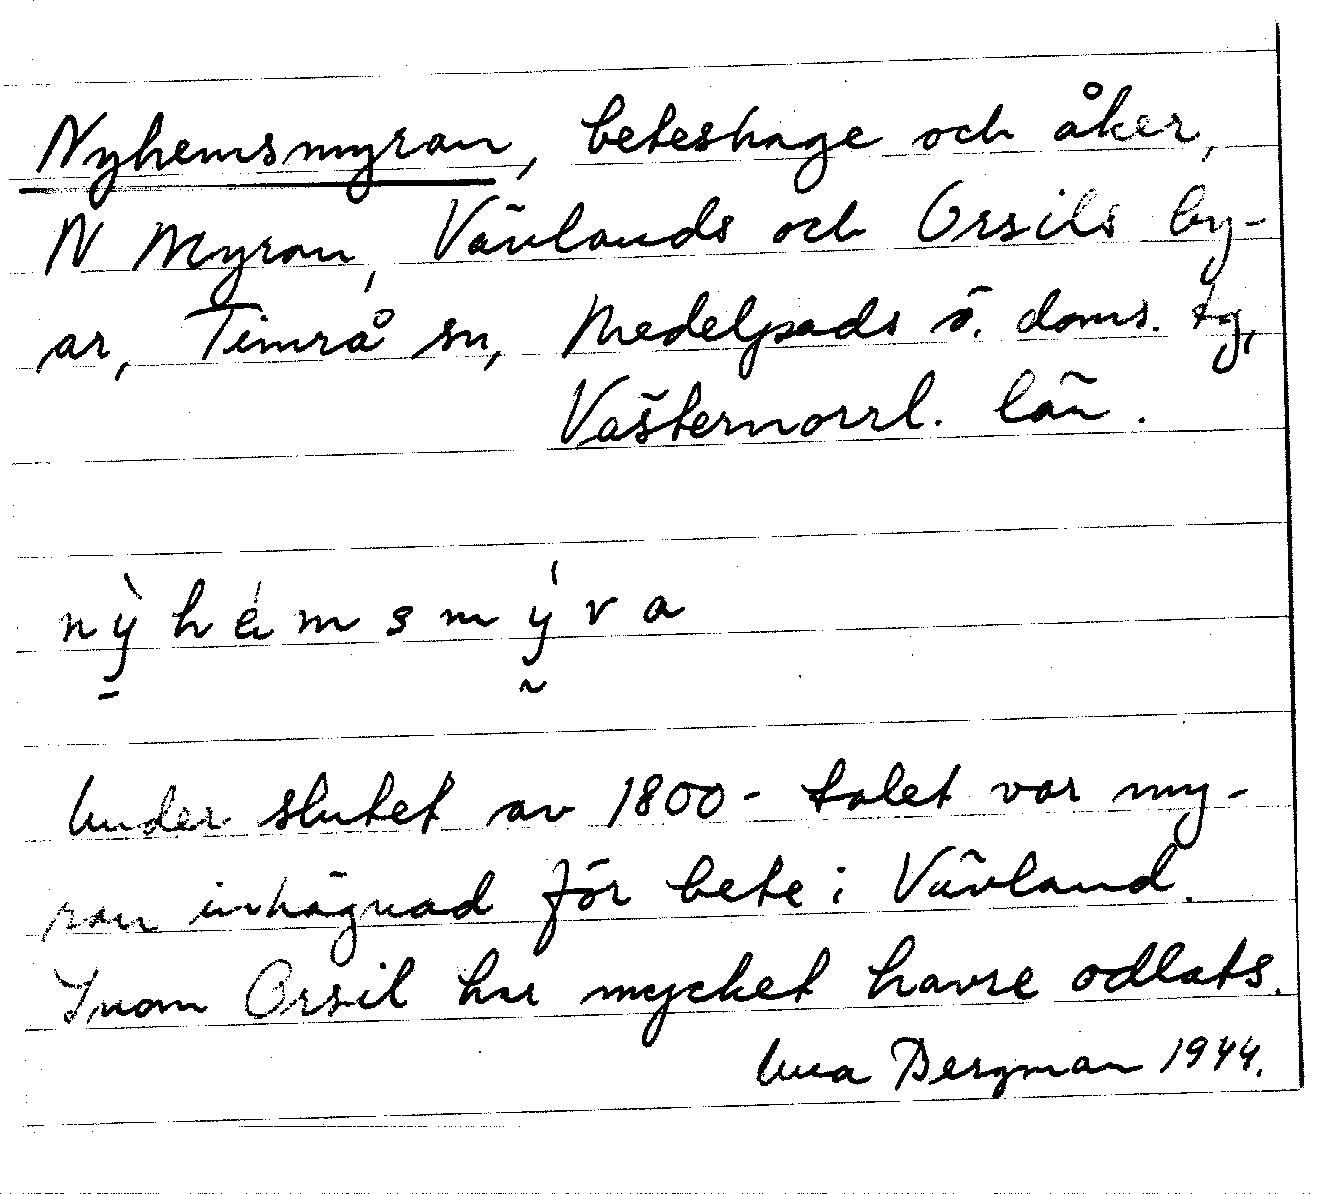 Nyhemsmyran, beteshage och åker,
N Myran, Vävlands och Orsils by-
ar, Timrå sn, Medelpads ö. doms. tg,
Västernorrl. län.
nỳhémsmýra
Under slutet av 1800-talet var my-
ran inhägnad för bete i Vävland.
Inom Orsil har mycket havre odlats.
Una Bergman 1944.